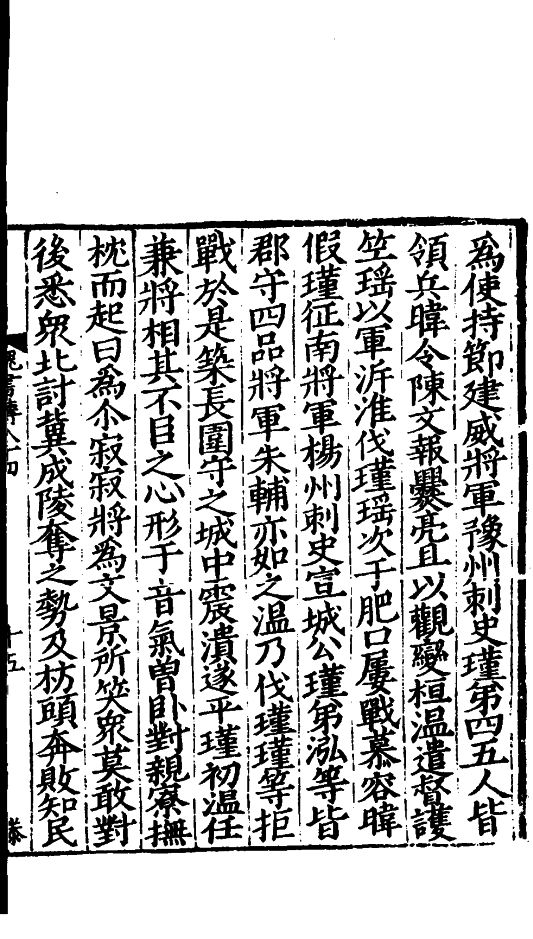 爲使持節建威將軍豫州刺史瑾弟四五人皆
領兵暐令陳文報爨亮且以觀變桓温遣督護
竺瑶以軍泝淮伐瑾瑶次于肥口屢戰慕容暐
假瑾征南將軍楊州刺史宣城公瑾弟泓等皆
郡守四品將軍朱輔亦如之温乃伐瑾瑾等拒
戰於是築長圍守之城中震潰遂平瑾初温任
兼將相其不臣之心形于音氣曾卧對親寮撫
枕而起曰爲尒寂寂將爲文景所笑衆莫敢對
後悉衆北討冀成陵奪之勢及枋頭奔敗知民
魏書傳八十四
十五